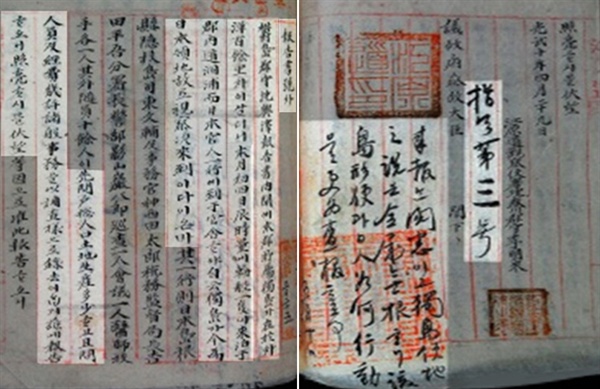 報告書號外
鬱島郡守沈興澤報告書內開에本郡所屬獨島가在於外
洋百餘里外이살더니本月初四日辰時量에輪船一雙이來泊于
郡內道洞浦而日本官人一行이到于官舍ᄒᆞ야自云獨島가今爲
日本領地故로視察次來到이다이온바其一行則日本島根
縣隱技島司東文輔及事務官神西由太郞稅務監督局長吉
田平吾分署長警部影山巖八郞巡査一人會議一人醫師技
手各一人其外隨員十餘人이先問戶摠人口土地生産多少ᄒᆞ고且問
人員及經費幾許諸般事務를以調査樣으로錄去이ᄋᆞᆸ기玆에報告
ᄒᆞ오니照亮ᄒᆞ시믈伏望等因으로准此報告ᄒᆞ오니
照亮ᄒᆞ시믈伏望
光武十年四月二十九日
江原道觀察使署理春川郡守李明來
議政府參政大臣 閣下
指令第三号
來報는閱悉이고獨島領地
之說은全屬無根하니該
島形便과日人如何行動
을更爲査報할事